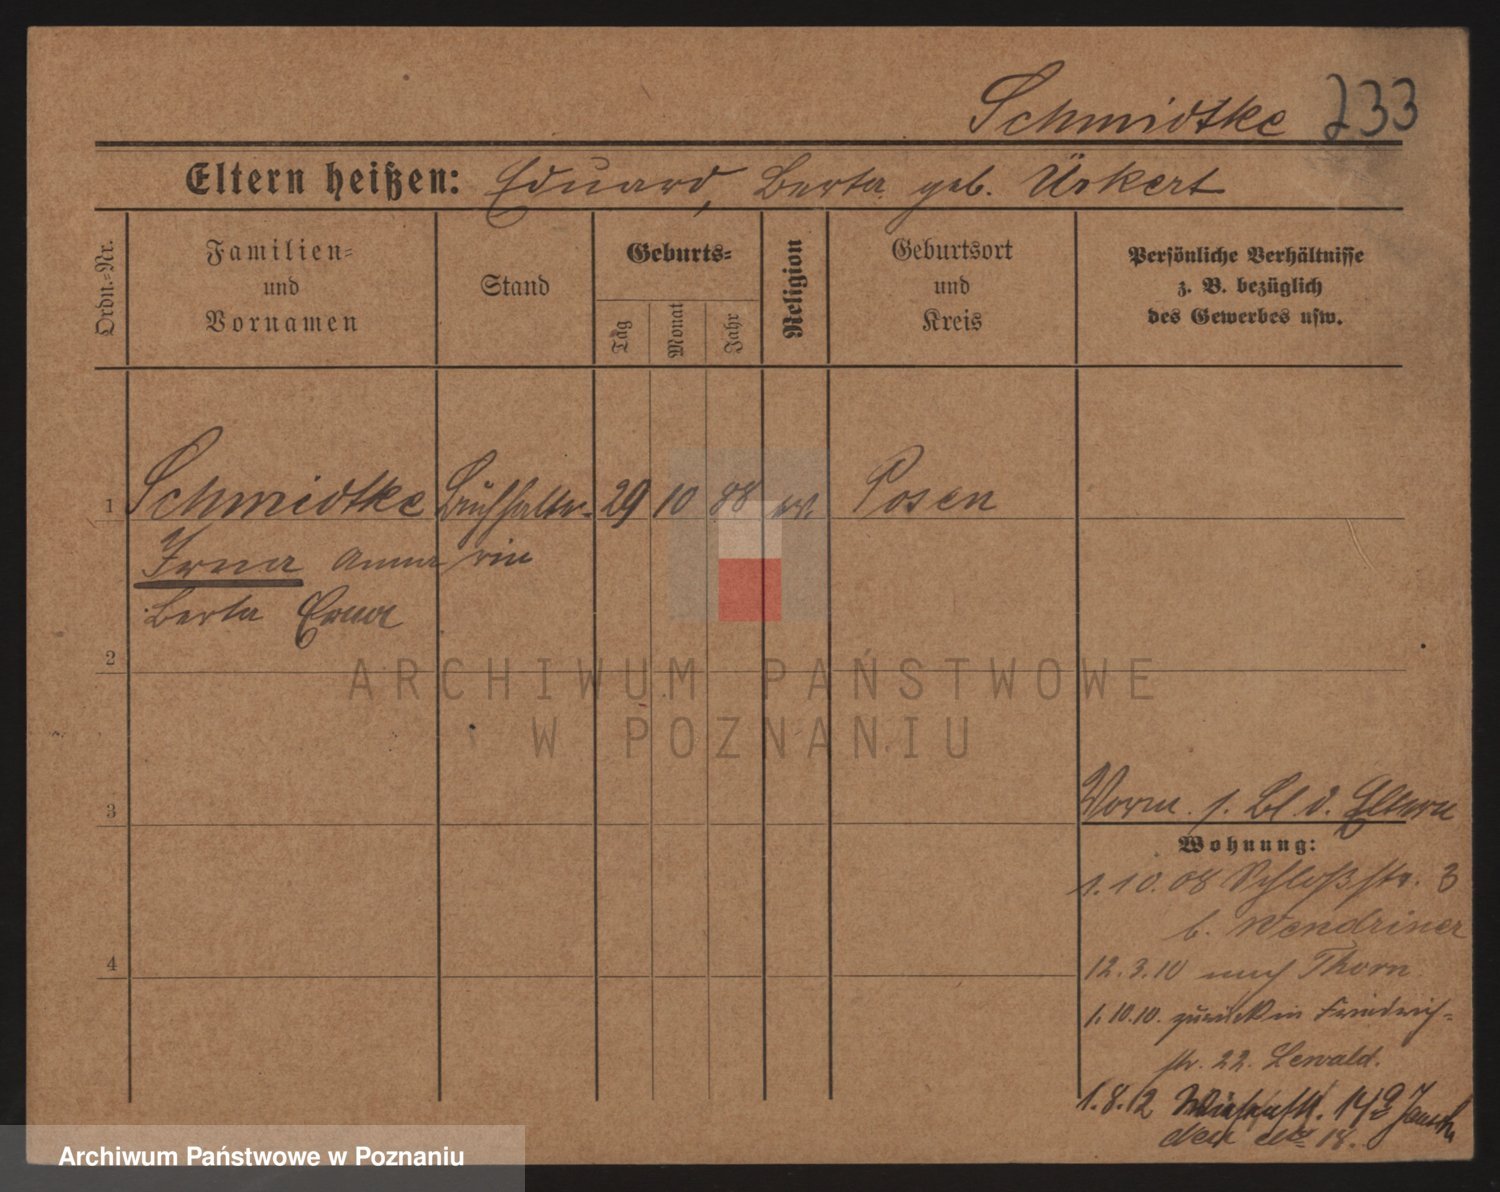 Schmidtke 233
Eltern heißen: Eduard, Berta geb. Ükert
Ordn.=Nr.
Familien=
und
Vornamen
Stand
Geburts=
Tag
Monat
Jahr
Religion
Geburtsort
und
Kreis
Persönliche Verhältnisse
z. B. bezüglich
des Gewerbes usw.
1 Schmidtke Buchhalte= 29 10 88 ev. Posen
Irna Anna rin
Berta Erna
2
ARCHIWUM PAŃSTWOWE
W POZNANIU
3
Vorm. s. Bl d. Eltern
Wohnung:
1.10.08 Schloßstr. 3
b. Wendriner
4
12.3.10 nach Thorn
1.10.10. zurück in Friedrich=
str. 22. Lewald.
1.8.12 14
18.
Archiwum Państwowe w Poznaniu